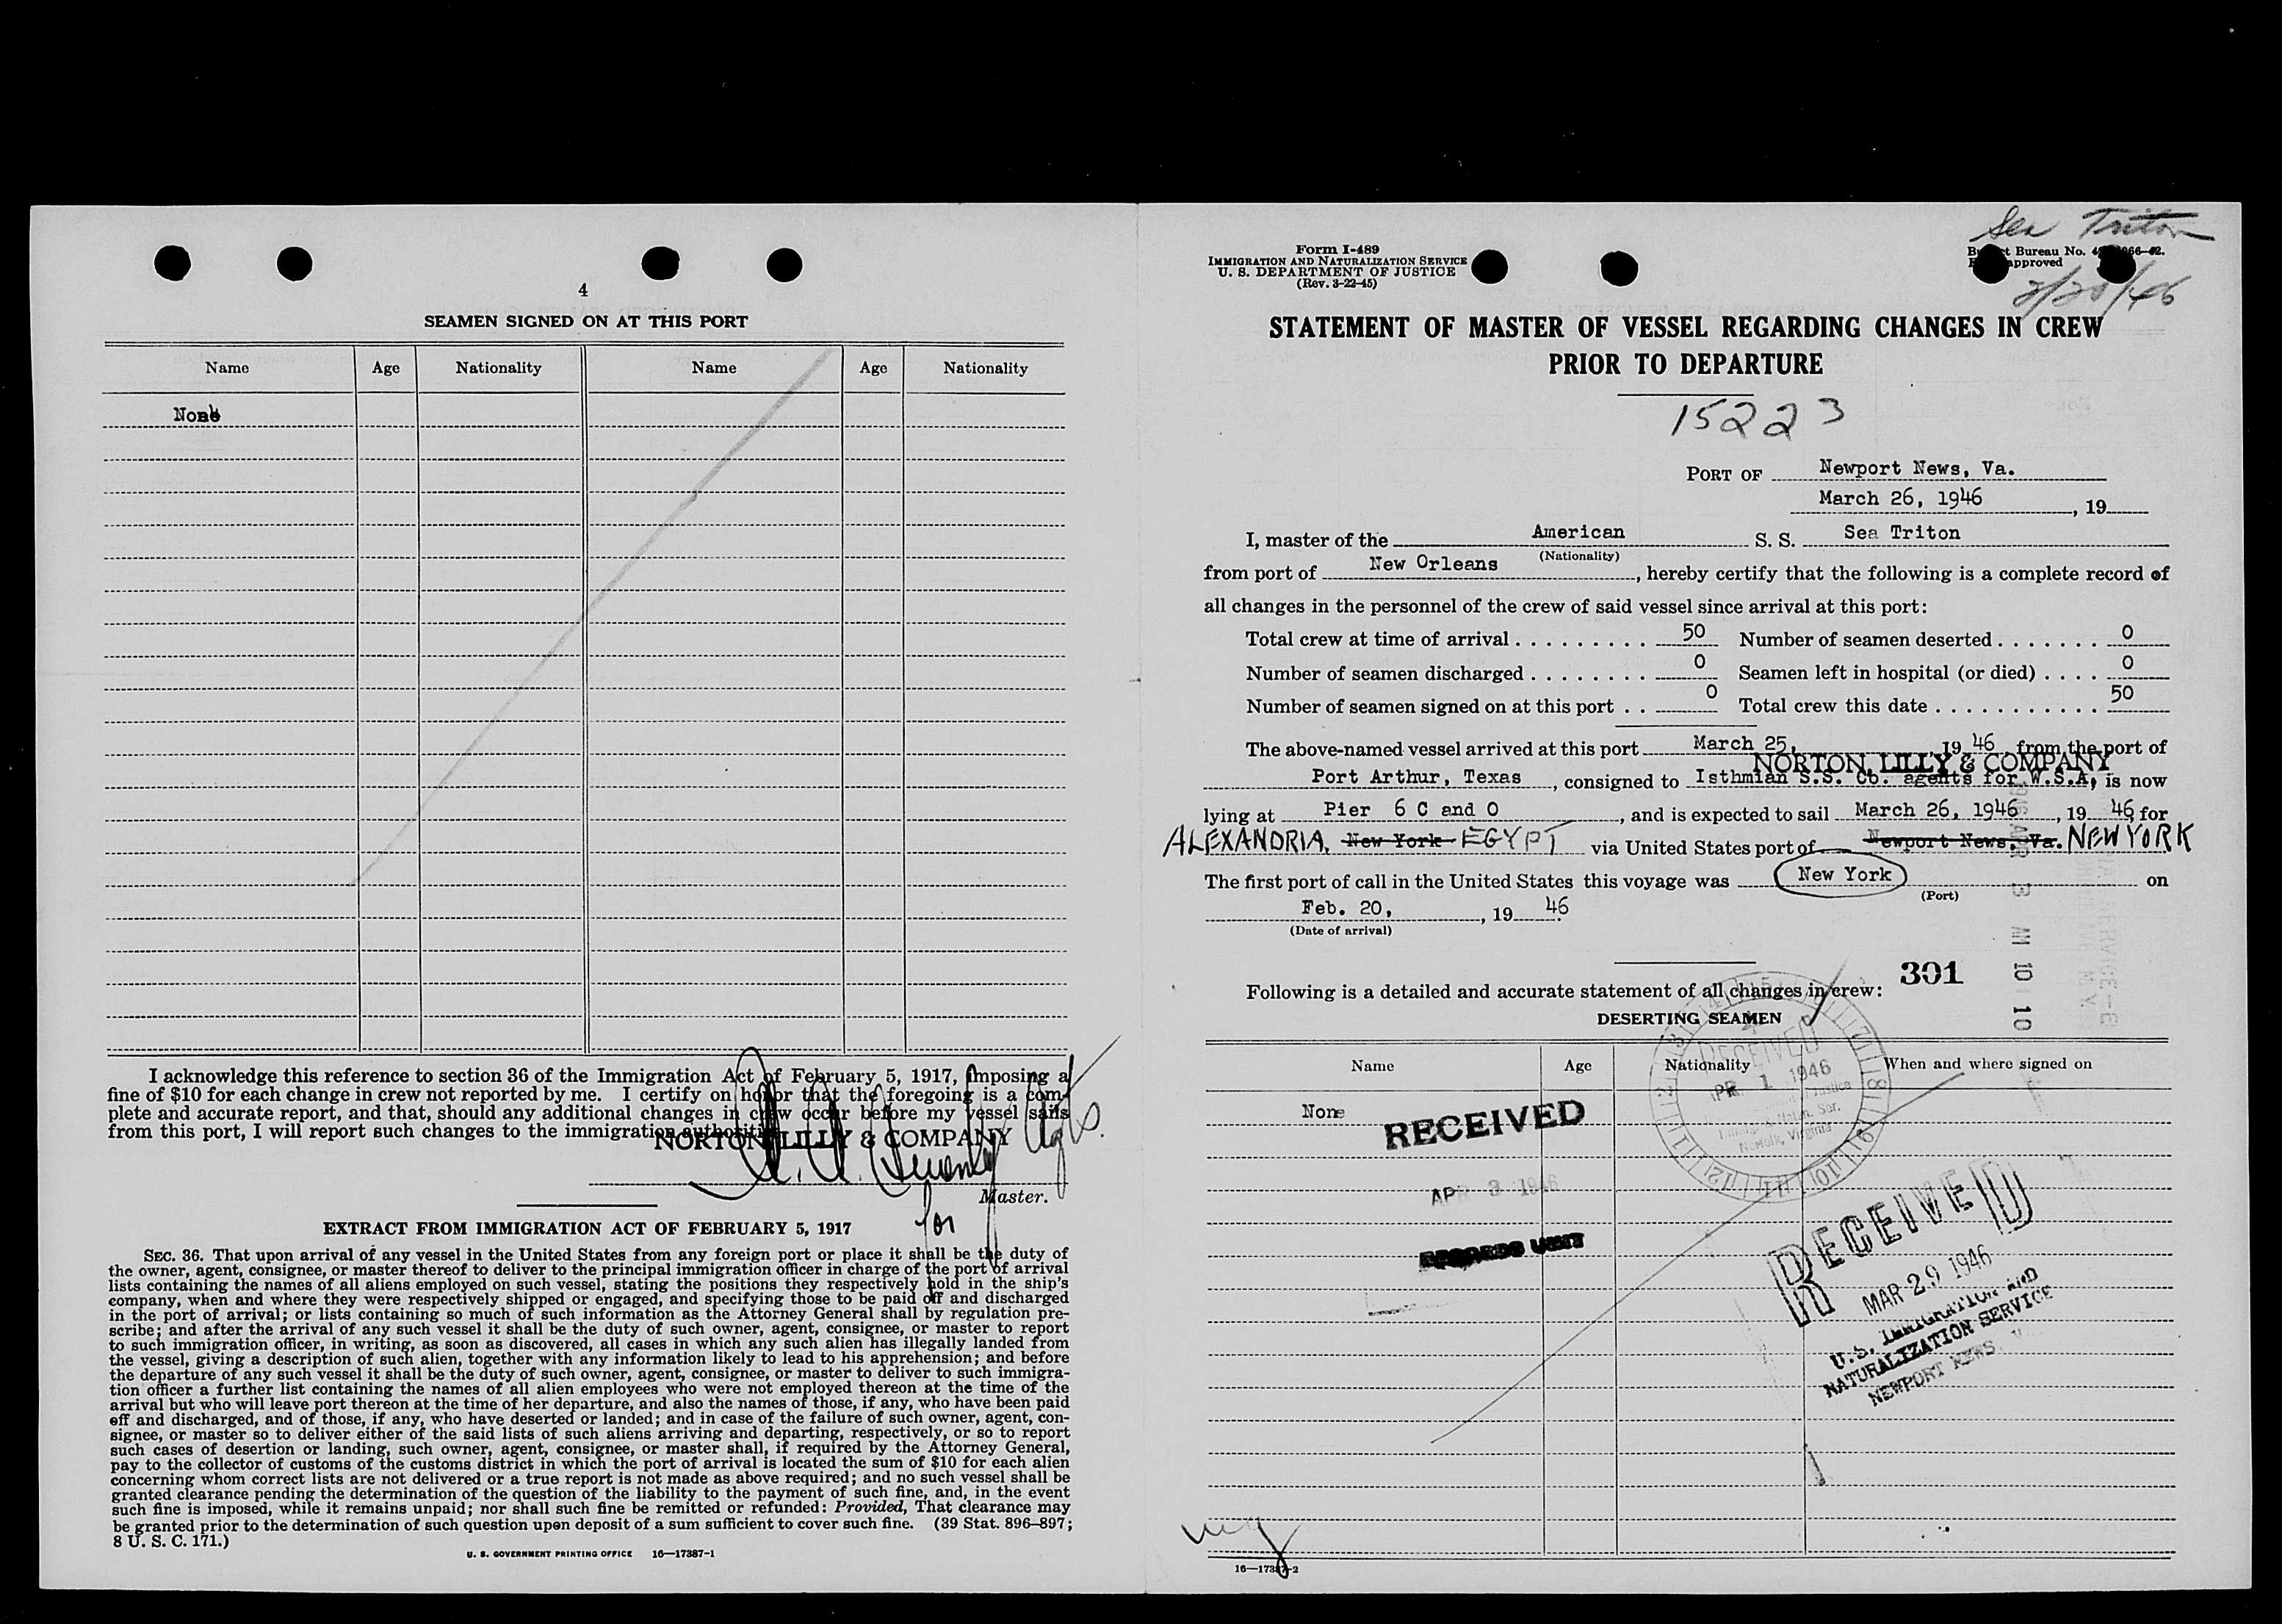 4
SEAMEN SIGNED ON AT THIS PORT
Name Age Nationality Name Age Nationality
None
I acknowledge this reference to section 36 of the Immigration Act of February 5, 1917, imposing a
fine of $10 for each change in crew not reported by me. I certify on honor that the foregoing is a com-
plete and accurate report, and that, should any additional changes in crew occur before my vessel sails
from this port, I will report such changes to the immigration authorities.
NORTON, LILLY & COMPANY Agts.
Master.
for
EXTRACT FROM IMMIGRATION ACT OF FEBRUARY 5, 1917
SEC. 36. That upon arrival of any vessel in the United States from any foreign port or place it shall be the duty of
the owner, agent, consignee, or master thereof to deliver to the principal immigration officer in charge of the port of arrival
lists containing the names of all aliens employed on such vessel, stating the positions they respectively hold in the ship's
company, when and where they were respectively shipped or engaged, and specifying those to be paid off and discharged
in the port of arrival; or lists containing so much of such information as the Attorney General shall by regulation pre-
scribe; and after the arrival of any such vessel it shall be the duty of such owner, agent, consignee, or master to report
to such immigration officer, in writing, as soon as discovered, all cases in which any such alien has illegally landed from
the vessel, giving a description of such alien, together with any information likely to lead to his apprehension; and before
the departure of any such vessel it shall be the duty of such owner, agent, consignee, or master to deliver to such immigra-
tion officer a further list containing the names of all alien employees who were not employed thereon at the time of the
arrival but who will leave port thereon at the time of her departure, and also the names of those, if any, who have been paid
off and discharged, and of those, if any, who have deserted or landed; and in case of the failure of such owner, agent, con-
signee, or master so to deliver either of the said lists of such aliens arriving and departing, respectively, or so to report
such cases of desertion or landing, such owner, agent, consignee, or master shall, if required by the Attorney General,
pay to the collector of customs of the customs district in which the port of arrival is located the sum of $10 for each alien
concerning whom correct lists are not delivered or a true report is not made as above required; and no such vessel shall be
granted clearance pending the determination of the question of the liability to the payment of such fine, and, in the event
such fine is imposed, while it remains unpaid; nor shall such fine be remitted or refunded: Provided, That clearance may
be granted prior to the determination of such question upon deposit of a sum sufficient to cover such fine. (39 Stat. 896–897;
8 U. S. C. 171.)
U. S. GOVERNMENT PRINTING OFFICE 16—17387-1
Sea Triton
Form I-489
IMMIGRATION AND NATURALIZATION SERVICE
U. S. DEPARTMENT OF JUSTICE
(Rev. 3-22-45)
Bureau No.
approved
2/20/46
STATEMENT OF MASTER OF VESSEL REGARDING CHANGES IN CREW
PRIOR TO DEPARTURE
15223
PORT OF Newport News, Va.
March 26, 1946, 19
I, master of the American S. S. Sea Triton
(Nationality)
from port of New Orleans, hereby certify that the following is a complete record of
all changes in the personnel of the crew of said vessel since arrival at this port:
Total crew at time of arrival 50 Number of seamen deserted 0
Number of seamen discharged 0 Seamen left in hospital (or died) 0
Number of seamen signed on at this port 0 Total crew this date 50
The above-named vessel arrived at this port March 25, 19 46 from the port of
NORTON, LILLY & COMPANY
Port Arthur, Texas, consigned to Isthmian S.S. Co. agents for W.S.A, is now
lying at Pier 6 C and O, and is expected to sail March 26, 1946, 19 46 for
ALEXANDRIA, New York EGYPT via United States port of Newport News, Va. NEW YORK
The first port of call in the United States this voyage was New York on
(Port)
Feb. 20, 19 46
(Date of arrival)
1946 APR 3 AM 10 10
301
Following is a detailed and accurate statement of all changes in crew:
DESERTING SEAMEN
Name Age Nationality When and where signed on
None
RECEIVED
APR 3 1946
RECORDS UNIT
RECEIVED
APR 1 1946
Norfolk, Virginia
RECEIVED
MAR 29 1946
U.S. IMMIGRATION AND
NATURALIZATION SERVICE
NEWPORT NEWS
16—17387-2